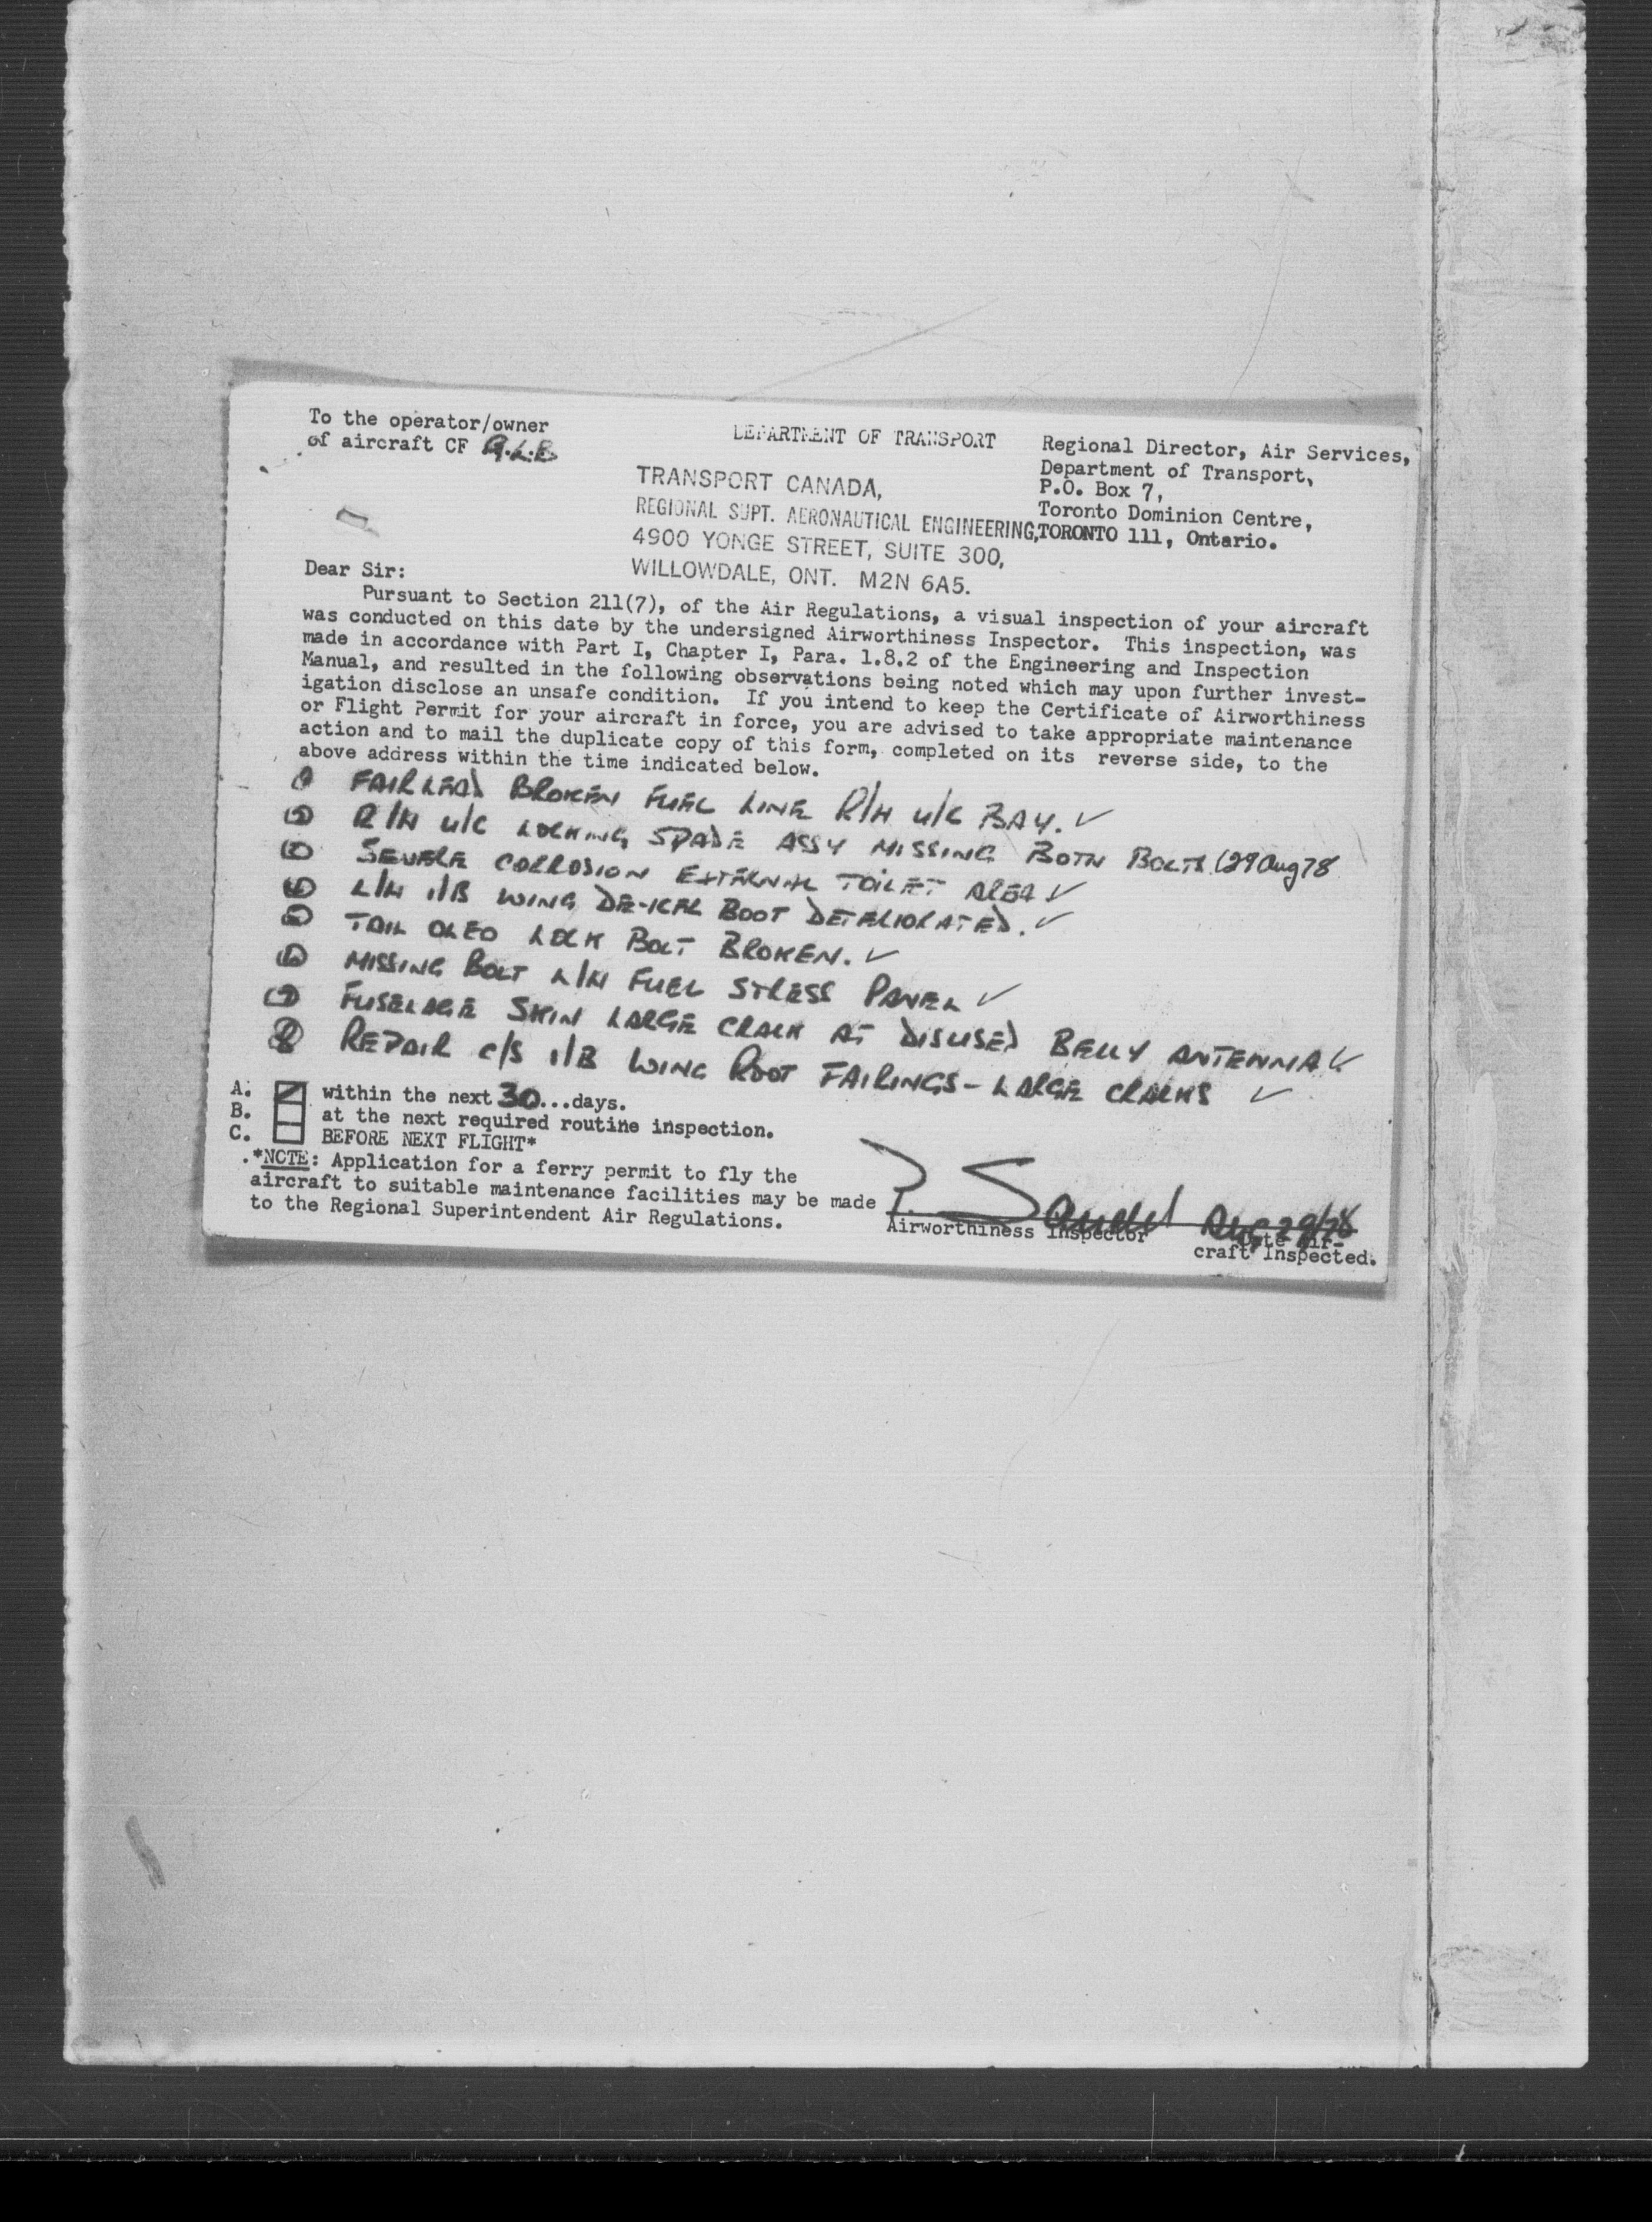 To the operator/owner
of aircraft CF
DEPARTMENT OF TRANSPORT
Regional Director, Air Services,
Department of Transport,
P.O. Box 7,
Toronto Dominion Centre,
TORONTO 111, Ontario.
TRANSPORT CANADA,
REGIONAL SUPT. AERONAUTICAL ENGINEERING,
4900 YONGE STREET, SUITE 300,
WILLOWDALE, ONT. M2N 6A5.
Dear Sir:
Pursuant to Section 211(7), of the Air Regulations, a visual inspection of your aircraft
was conducted on this date by the undersigned Airworthiness Inspector. This inspection, was
made in accordance with Part I, Chapter I, Para. 1.8.2 of the Engineering and Inspection
Manual, and resulted in the following observations being noted which may upon further invest-
igation disclose an unsafe condition. If you intend to keep the Certificate of Airworthiness
or Flight Permit for your aircraft in force, you are advised to take appropriate maintenance
action and to mail the duplicate copy of this form, completed on its reverse side, to the
above address within the time indicated below.
① FAIRLEAD BROKEN FUEL LINE R/H U/C BAY. ✓
② R/H U/C LOCKING SPADE ASSY MISSING BOTH BOLTS (29 Aug 78
③ SEVERE CORROSION EXTERNAL TOILET AREA ✓
④ L/H I/B WING DE-ICER BOOT DETERIORATED. ✓
⑤ TAIL OLEO LOCK BOLT BROKEN. ✓
⑥ MISSING BOLT L/H FUEL STRESS PANEL ✓
⑦ FUSELAGE SKIN LARGE CRACK AT DISUSED BELLY ANTENNA ✓
⑧ REPAIR C/S I/B WING ROOT FAIRINGS - LARGE CRACKS ✓
A. within the next 30...days.
B. at the next required routine inspection.
C. BEFORE NEXT FLIGHT*
.*NOTE: Application for a ferry permit to fly the
aircraft to suitable maintenance facilities may be made
to the Regional Superintendent Air Regulations.
Aug 29/78
Airworthiness Inspector
Date Air-
craft Inspected.